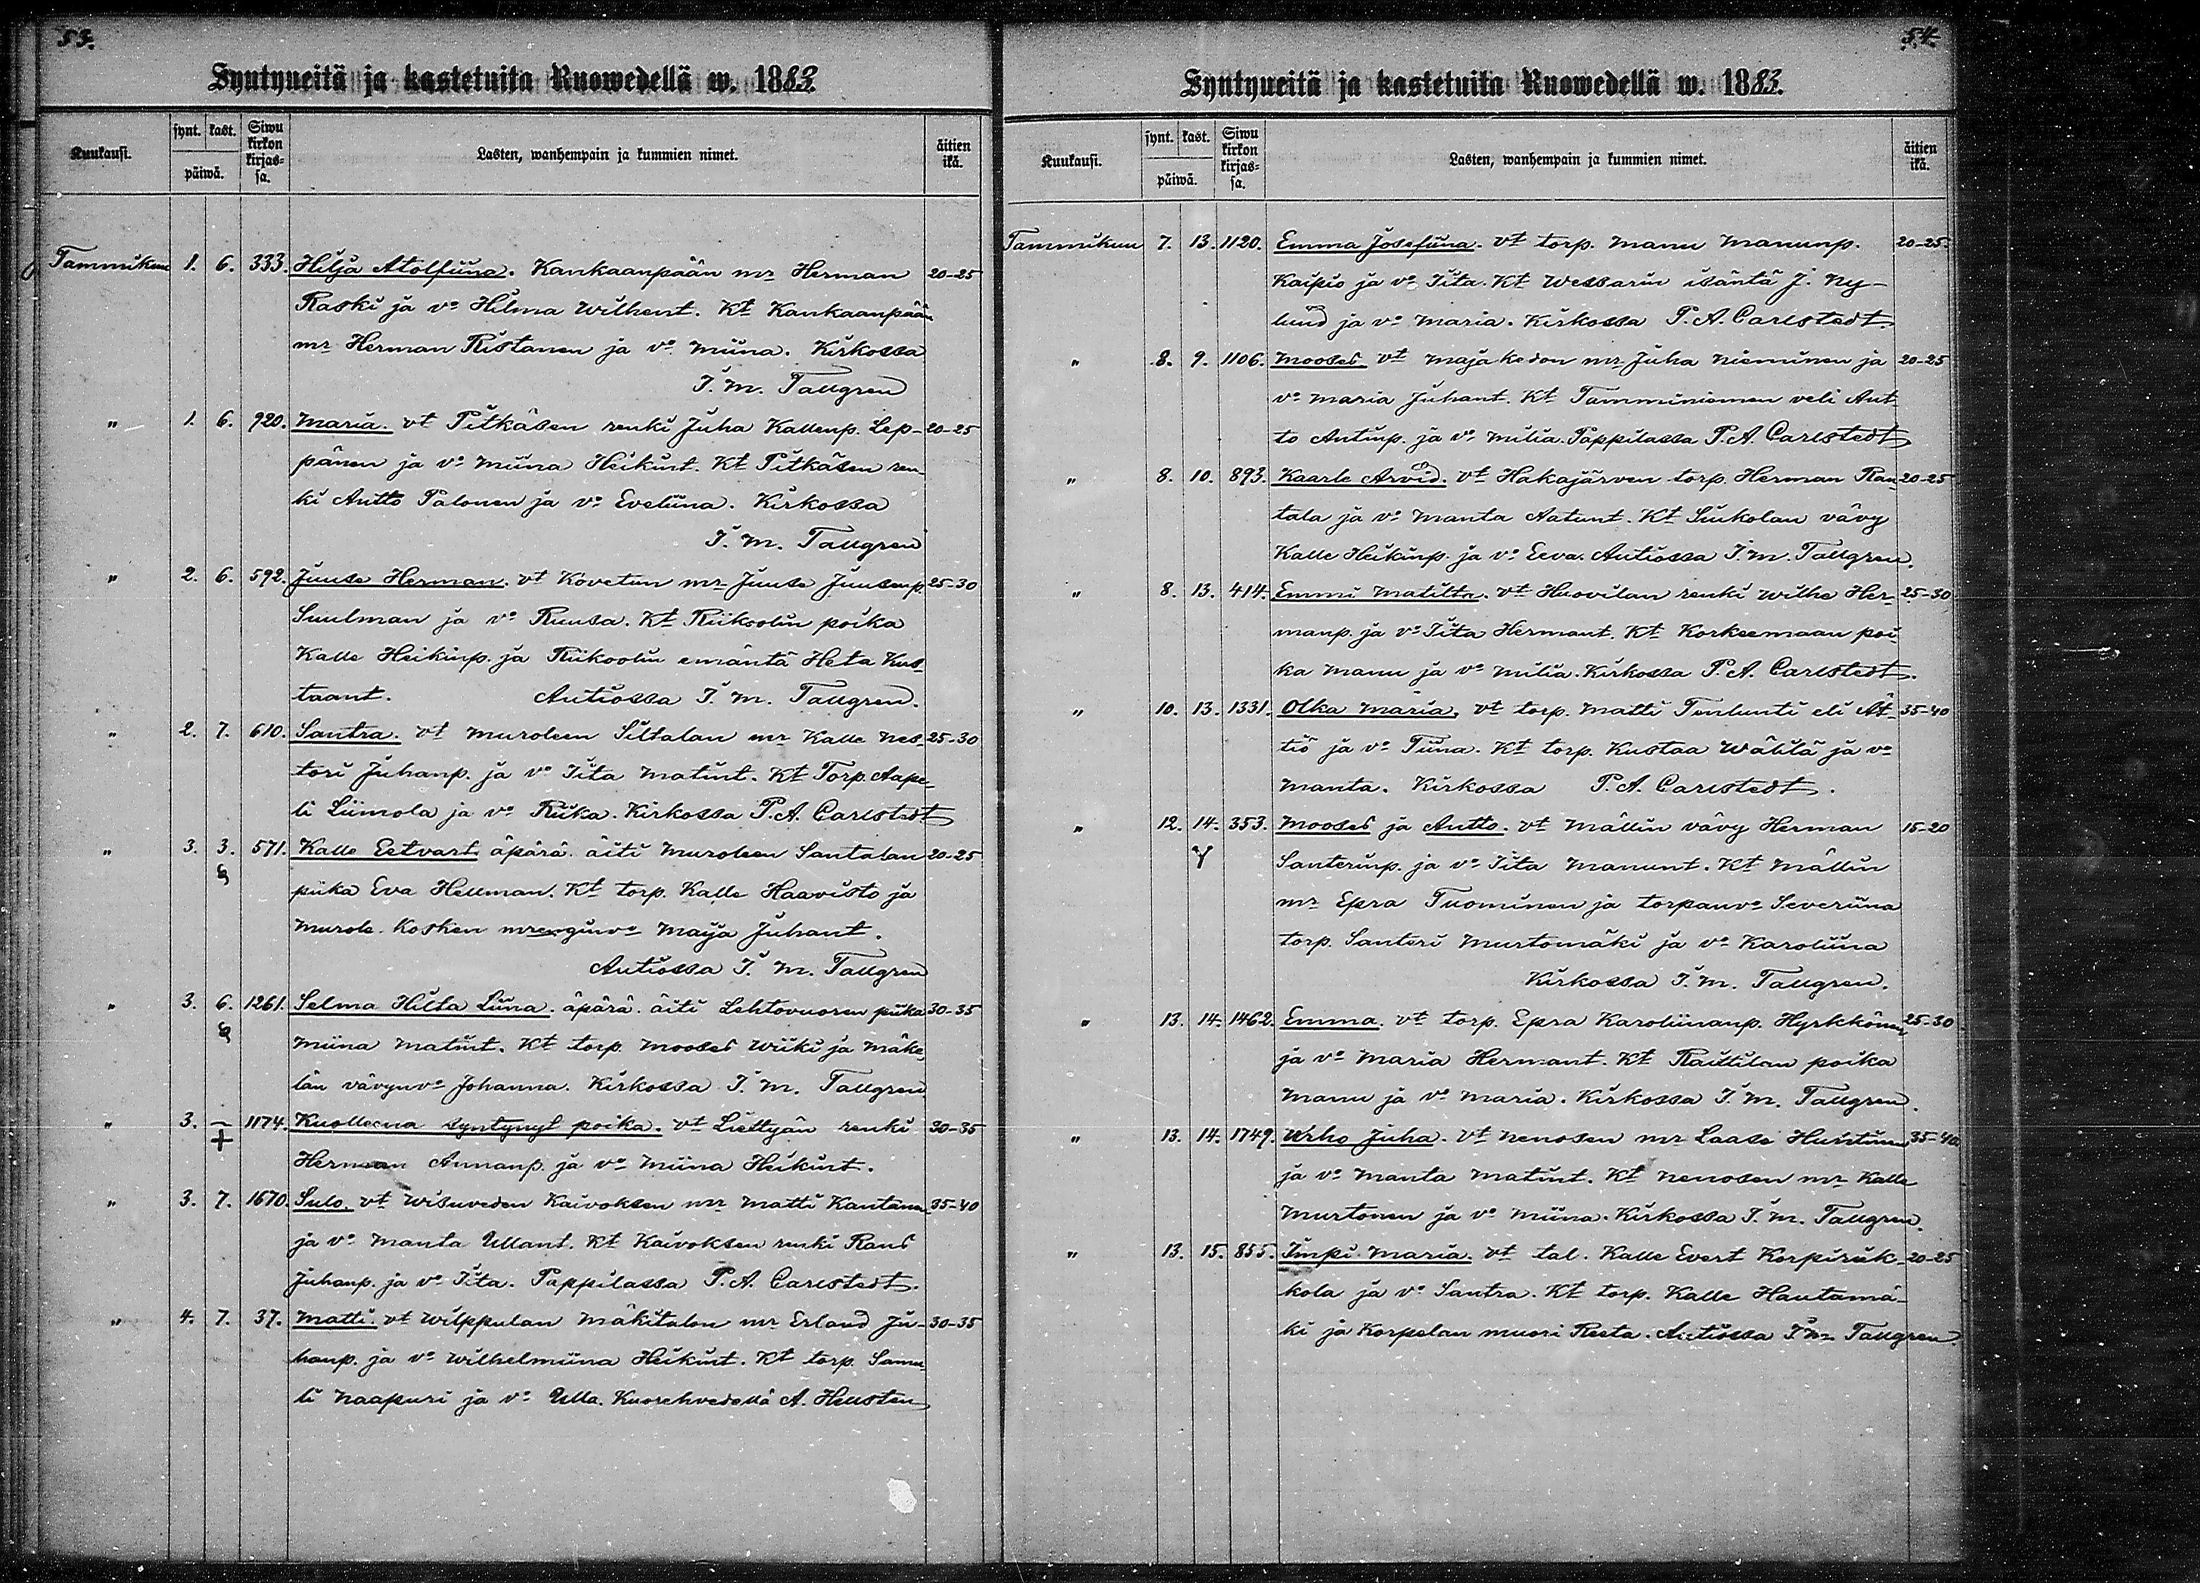 53.
Syntyneitä ja kastetuita Ruowedellä w. 1883.
Kuukausi.
synt. kast.
päiwä.
Siwu kirkon kirjas-sa.
Lasten, wanhempain ja kummien nimet.
äitien ikä.
Tammikuu 1. 6. 333. Hilja Atolfiina. Kankaanpään mr Herman 20-25
Raski ja vo Hilma Wilhent. Kt Kankaanpään
mr Herman Ristanen ja vo Miina. Kirkossa
I. M. Tallgren
" 1. 6. 920. Maria. vt Pitkäsen renki Juha Kallenp. Lep- 20-25
pänen ja vo Miina Heikint. Kt Pitkäsen ren-
ki Antto Palonen ja vo Eveliina. Kirkossa
I. M. Tallgren
" 2. 6. 592. Juuse Herman. vt Kovetun mr Juuse Juusenp. 25-30
Suulman ja vo Ruusa. Kt Riikoolin poika
Kalle Heikinp. ja Riikoolin emäntä Heta Kus-
taant. Autiossa I. M. Tallgren.
" 2. 7. 610. Santra. vt Muroleen Siltalan mr Kalle Nes- 25-30
tori Juhanp. ja vo Iita Matint. Kt Torp. Aape-
li Liimola ja vo Riika. Kirkossa P. A. Carlstedt
" 3. 3. 571. Kalle Eetvart äpärä. äiti Muroleen Santalan 20-25
piika Eva Hellman. Kt torp. Kalle Haavisto ja
Murole. Kosken vo Maija Juhant.
Autiossa I. M. Tallgren
" 3. 6. 1261. Selma Hilta Liina. äpärä. äiti Lehtovuoren piika 30-35
Miina Matint. Kt torp. Mooses Wiiki ja Mäke-
län vävynvo Johanna. Kirkossa I. M. Tallgren
" 3. – + 1174. Kuolleena syntynyt poika. vt Liettyän renki 30-35
Herman Annanp. ja vo Miina Heikint.
" 3. 7. 1670. Sulo. vt Wisuveden Kaivoksen mr Matti Kantanen 35-40
ja vo Manta Ullant. Kt Kaivoksen renki Rans
Juhanp. ja vo Iita. Pappilassa P. A. Carlstedt.
" 4. 7. 37. Matti. vt Wilppulan Mäkitalon mr Erland Ju- 30-35
hanp. ja vo Wilhelmiina Heikint. Kt torp. Samu-
li Naapuri ja vo Ulla. Kuorehvedellä A. Hellsten
54.
Syntyneitä ja kastetuita Ruowedellä w. 1883.
Kuukausi.
synt. kast.
päiwä.
Siwu kirkon kirjas-sa.
Lasten, wanhempain ja kummien nimet.
äitien ikä.
Tammikuu 7. 13. 1120. Emma Josefiina. vt torp. Manu Manunp. 20-25.
Kaipio ja vo Iita. Kt Wessarin isäntä J. Ny-
lund ja vo Maria. Kirkossa P. A. Carlstedt
" 8. 9. 1106. Mooses. vt Majakedon mr Juha Nieminen ja 20-25
vo Maria Juhant. Kt Tamminiemen veli Ant-
to Antinp. ja vo Milia. Pappilassa P. A. Carlstedt
" 8. 10. 893. Kaarle Arvid. vt Hakajärven torp. Herman Ran- 20-25
tala ja vo Manta Aatunt. Kt Siukolan vävy
Kalle Heikinp. ja vo Eeva. Autiossa I. M. Tallgren.
" 8. 13. 414. Emmi Matilta. vt Huovilan renki Wilhe Her- 25-30
manp. ja vo Iita Hermant. Kt Korkeemaan poi-
ka Manu ja vo Milia. Kirkossa P. A. Carlstedt.
" 10. 13. 1331. Olka Maria. vt torp. Matti Tenlunti eli Ät- 35-40
tiö ja vo Tiina. Kt torp. Kustaa Wälilä ja vo
Manta. Kirkossa P. A. Carlstedt.
" 12. 14. 353. Mooses ja Antto. vt Mällin vävy Herman 15-20
Santerinp. ja vo Iita Manunt. Kt Mällin
mr Epra Tuominen ja torpanvo Severiina
torp. Santeri Murtomäki ja vo Karoliina
Kirkossa I. M. Tallgren.
" 13. 14. 1462. Emma. vt torp. Epra Karoliinanp. Hyrkkönen 25-30
ja vo Maria Hermant. Kt Raittilan poika
Manu ja vo Maria. Kirkossa I. M. Tallgren.
" 13. 14. 1749. Urho Juha. vt Nenosen mr Laase Huistinen 35-40
ja vo Manta Matint. Kt Nenosen mr Kalle
Murtonen ja vo Miina. Kirkossa I. M. Tallgren.
" 13. 15. 855. Impi Maria. vt tal. Kalle Evert Korpiruk- 20-25
kola ja vo Santra. Kt torp. Kalle Hautamä-
ki ja Korpelan muori Reeta. Autiossa I. M. Tallgren.